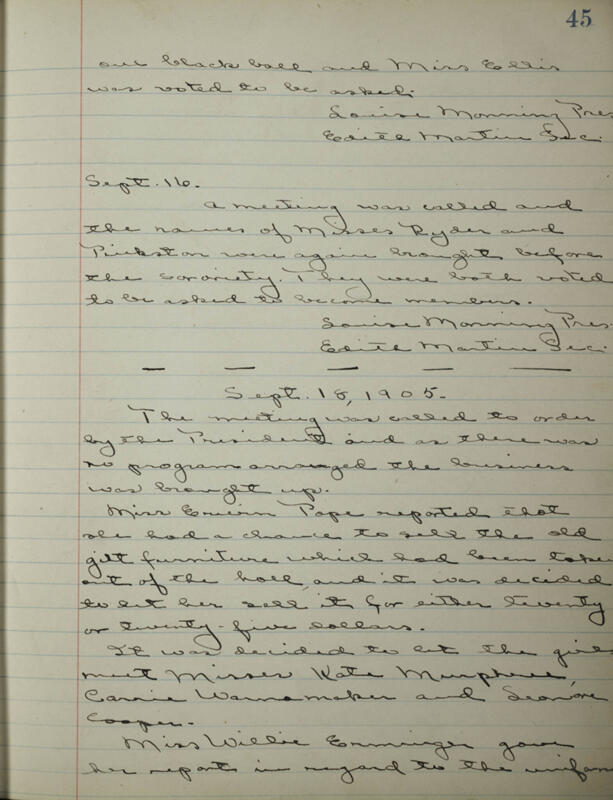 45
one black ball and Miss Ellis
was voted to be asked.
Louise Monning Pres.
Edith Martin Sec.
Sept. 16.
A meeting was called and
the names of Misses Ryder and
Pinkston were again brought before
the sorority. They were both voted
to be asked to become members.
Louise Monning Pres.
Edith Martin Sec.
Sept. 18, 1905.
The meeting was called to order
by the President and as there was
no program arranged the business
was brought up.
Miss Pope reported that
she had a chance to sell the old
gilt furniture which had been taken
out of the hall, and it was decided
to let her sell it for either twenty
or twenty-five dollars.
It was decided to let the girls
meet Misses Kate Murphree,
Carrie Wannamaker and Leonore
Cooper.
Miss Willie Erminger gave
her reports in regard to the uniform